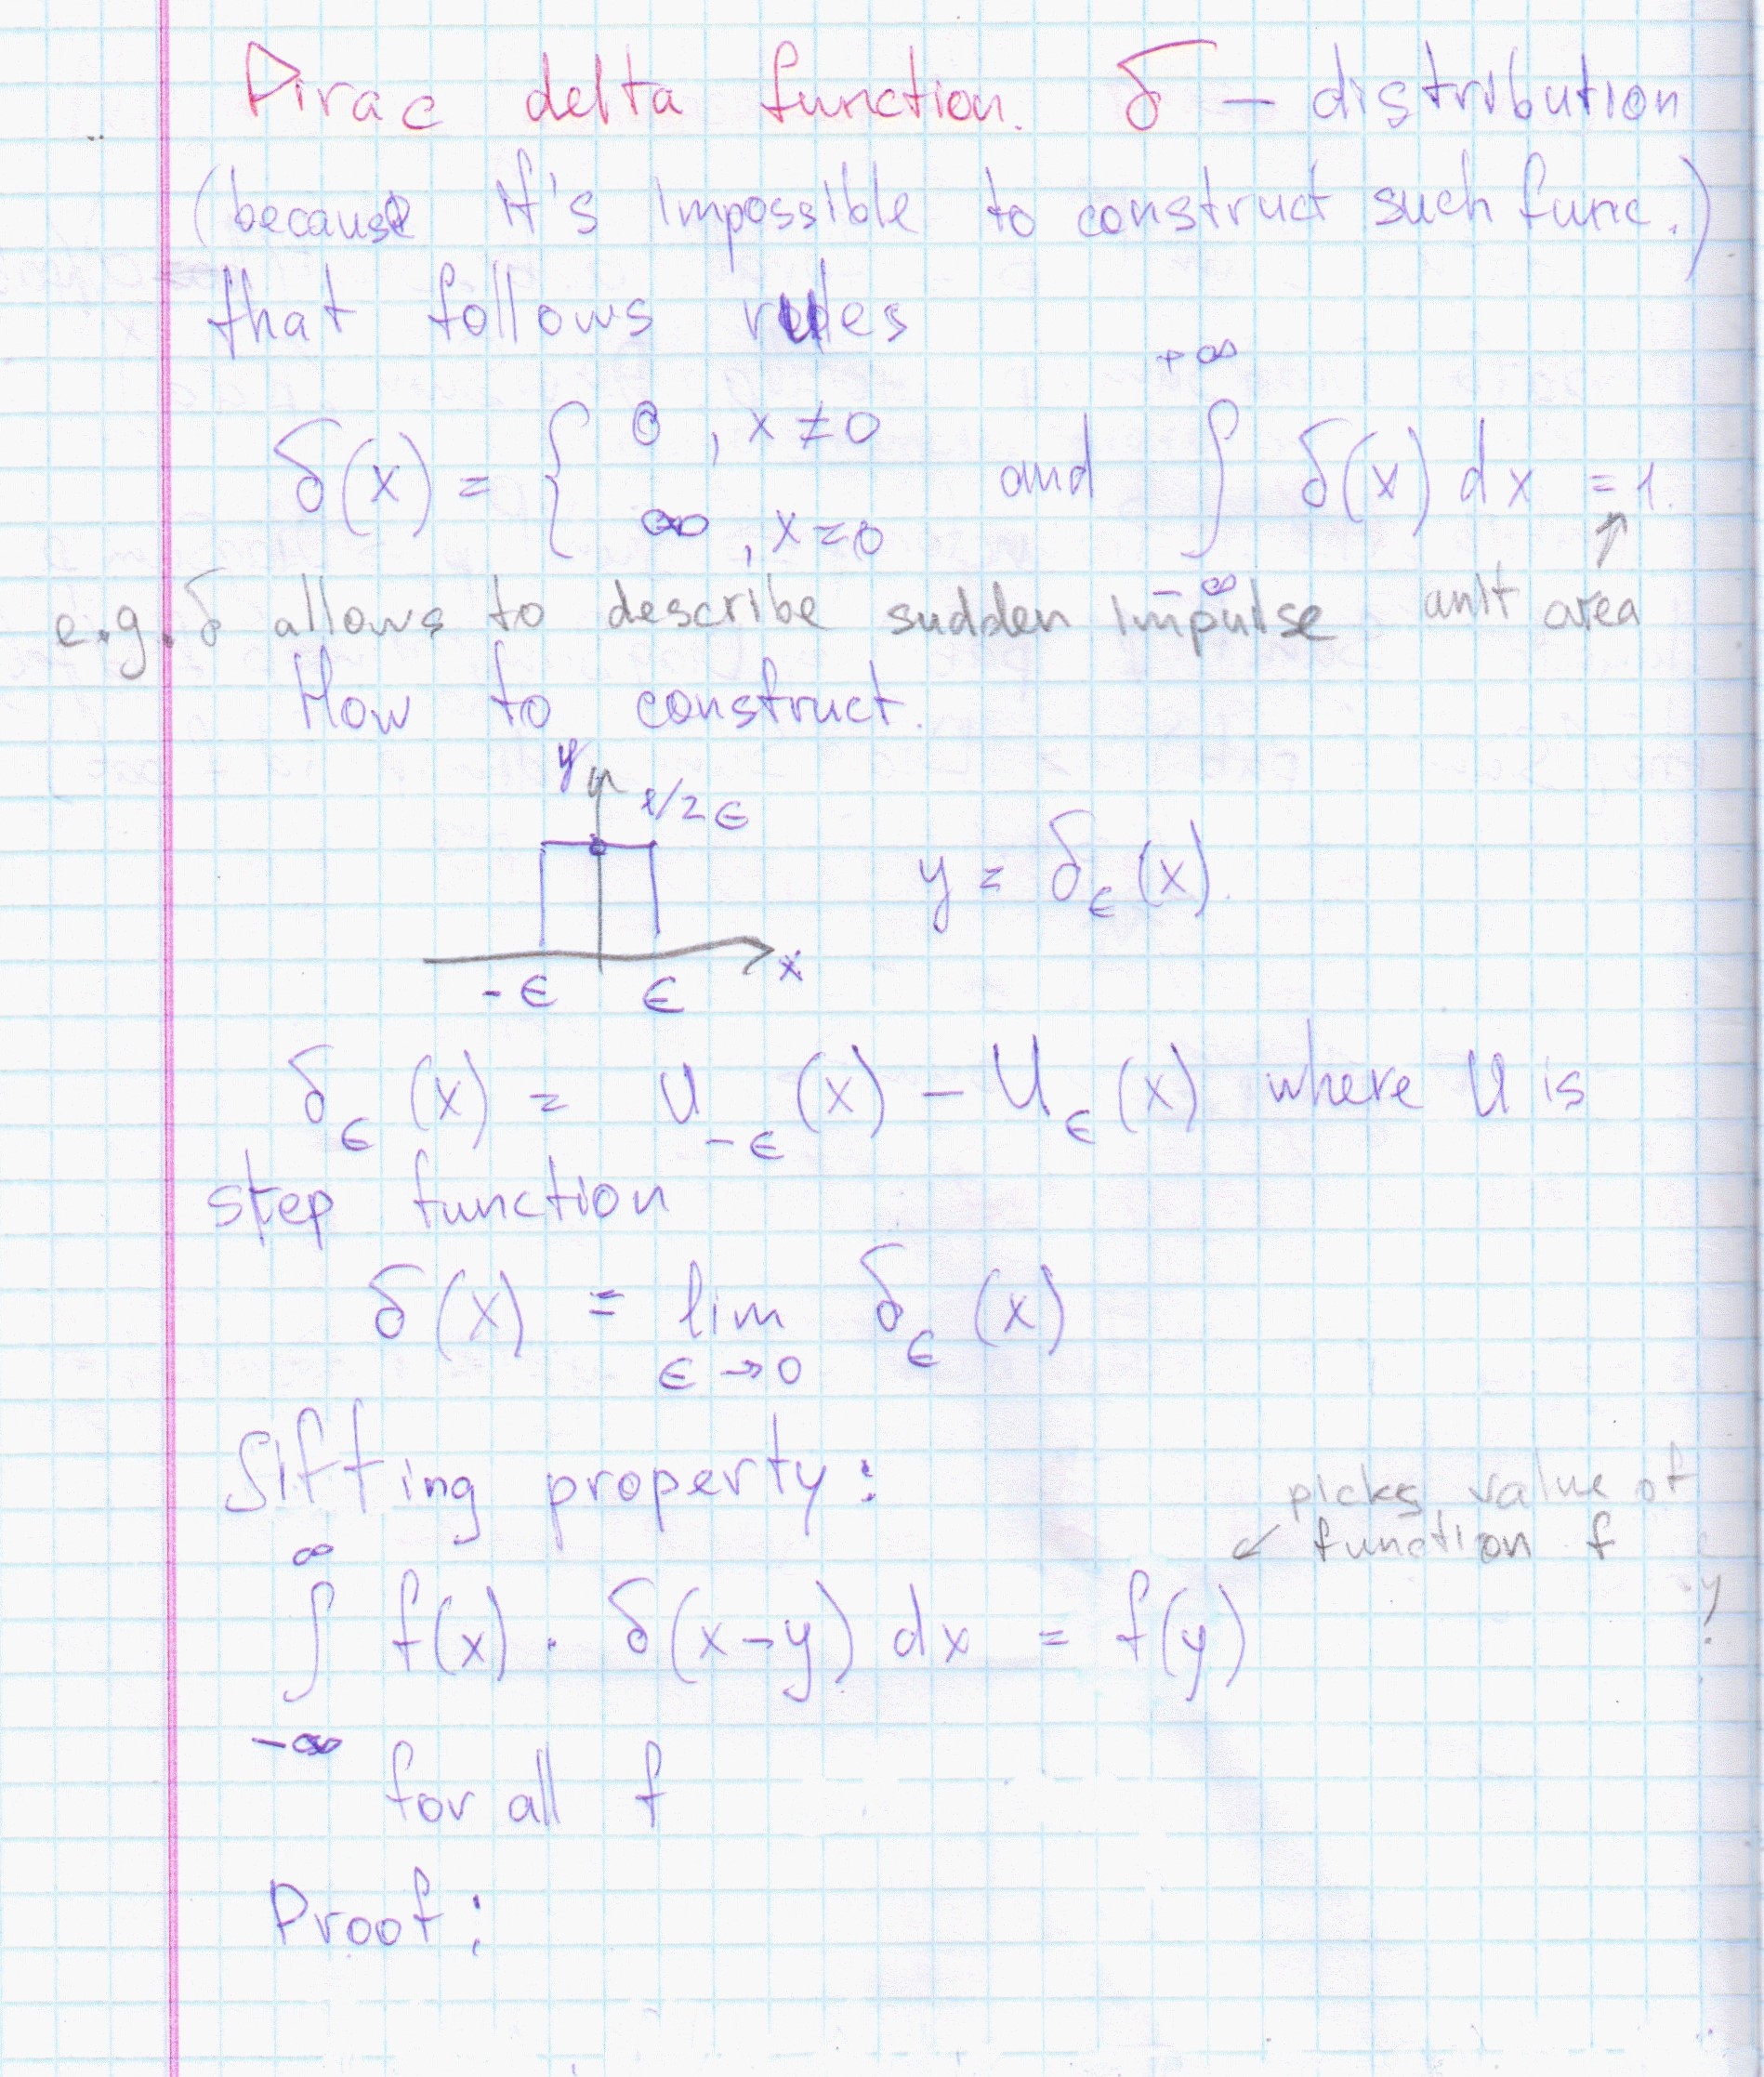 Dirac delta function. δ – distribution
(because it's impossible to construct such func.)
that follows rules
δ(x) = { 0, x ≠ 0 ; ∞, x = 0 and ∫_{-∞}^{+∞} δ(x) dx = 1.
↑
e.g. δ allows to describe sudden impulse unit area
How to construct.
y
1/2ϵ
y = δ_ϵ(x).
x
-ϵ ϵ
δ_ϵ(x) = U_{-ϵ}(x) – U_ϵ(x) where U is
step function
δ(x) = lim_{ϵ→0} δ_ϵ(x)
Sifting property:
picks value of
↙ function f
∫_{-∞}^{∞} f(x) · δ(x-y) dx = f(y)
for all f
Proof: